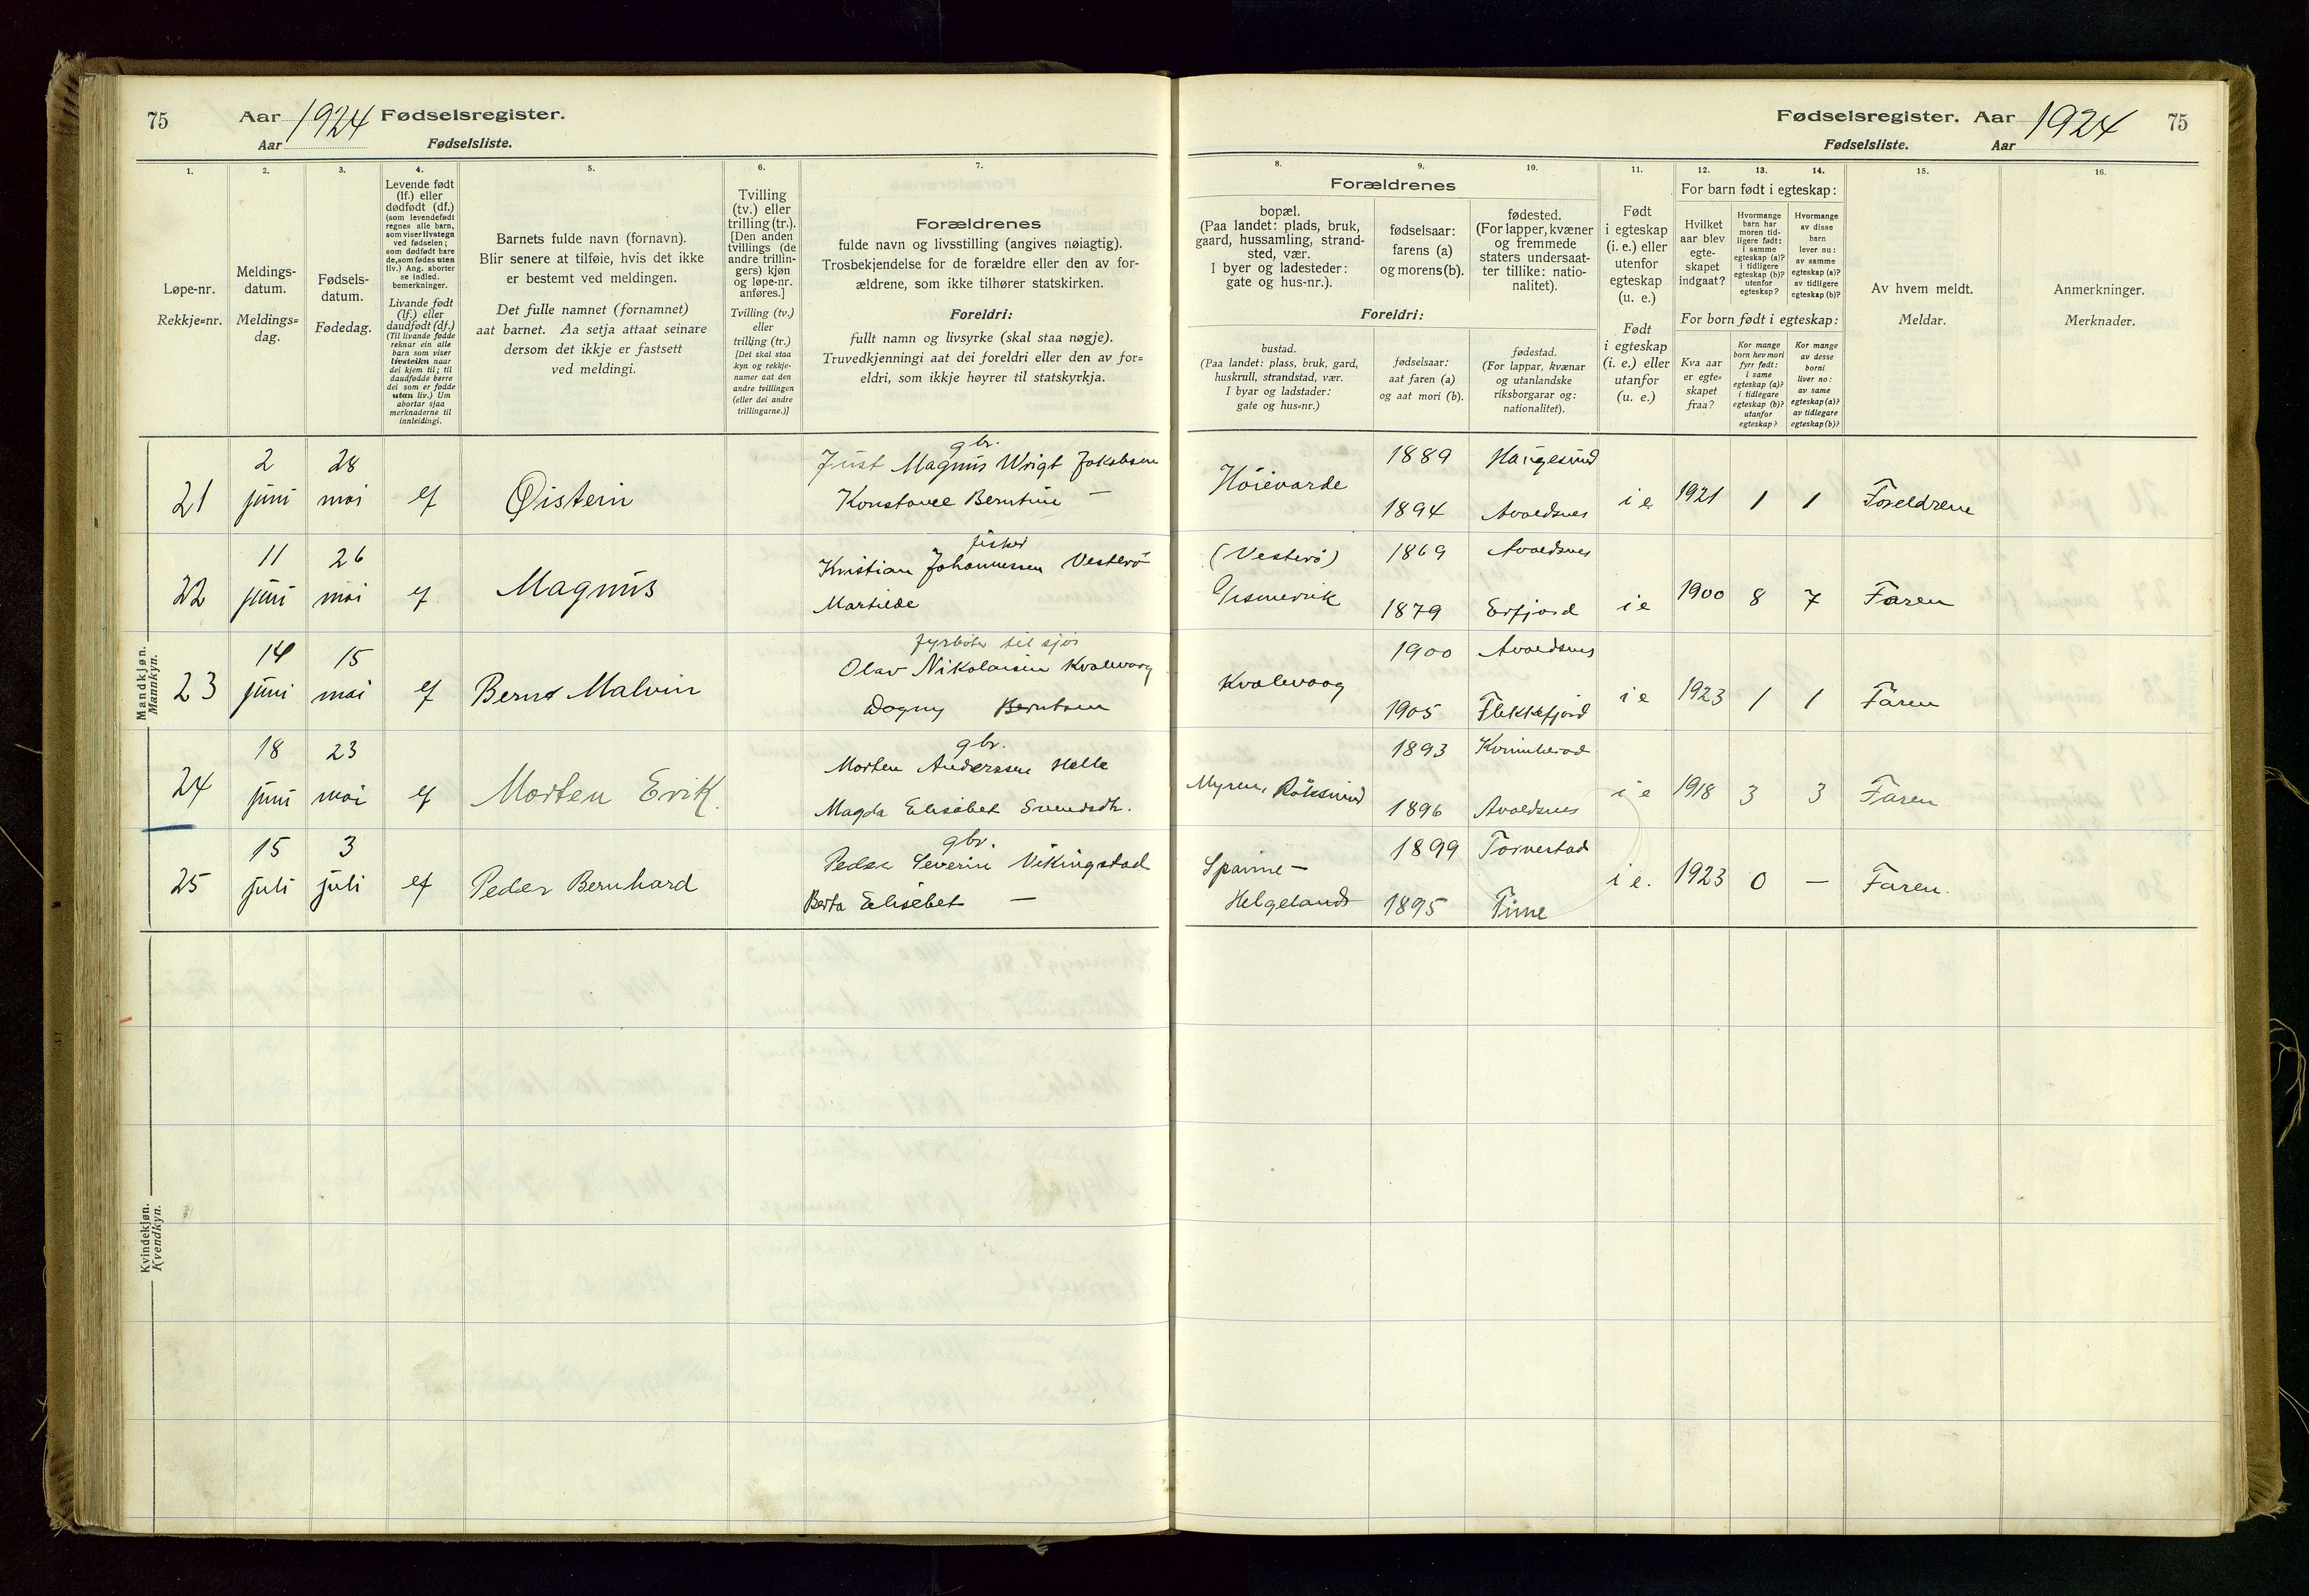 75
Aar 1924 Fødselsregister.
Aar Fødselsliste.
Fødselsregister. Aar 1924
75
Fødselsliste. Aar
1. 2. 3. 4. 5. 6. 7.
Løpe-nr.
Rekkje=nr.
Meldings-
datum.
Meldings=
dag.
Fødsels-
datum.
Fødedag.
Levende født
(lf.) eller
dødfødt (df.)
(som levendefødt
regnes alle barn,
som viser livstegn
ved fødselen;
som dødfødt bare
de, som fødes uten
liv.) Ang. aborter
se indled.
bemerkninger.
Livande født
(lf.) eller
daudfødt (df.)
(Til livande fødde
reknar ein alle
barn som viser
livsteikn naar
dei kjem til; til
daudfødde berre
dei som er fødde
utan liv.) Um
abortar sjaa
merknaderne til
innleidingi.
Barnets fulde navn (fornavn).
Blir senere at tilføie, hvis det ikke
er bestemt ved meldingen.
Det fulle namnet (fornamnet)
aat barnet. Aa setja attaat seinare
dersom det ikkje er fastsett
ved meldingi.
Tvilling
(tv.) eller
trilling (tr.).
[Den anden
tvillings (de
andre trillin-
gers) kjøn
og løpe-nr.
anføres.]
Tvilling (tv.)
eller
trilling (tr.)
[Det skal staa
kyn og rekkje-
numer aat den
andre tvillingen
(eller dei andre
trillingarne.)]
Forældrenes
fulde navn og livsstilling (angives nøiagtig).
Trosbekjendelse for de forældre eller den av for-
ældrene, som ikke tilhører statskirken.
Foreldri:
fullt namn og livsyrke (skal staa nøgje).
Truvedkjenningi aat dei foreldri eller den av for=
eldri, som ikkje høyrer til statskyrkja.
8. 9. 10. 11. 12. 13. 14. 15. 16.
Forældrenes
bopæl.
(Paa landet: plads, bruk,
gaard, hussamling, strand-
sted, vær.
I byer og ladesteder:
gate og hus-nr.).
fødselsaar:
farens (a)
og morens (b).
fødested.
(For lapper, kvæner
og fremmede
staters undersaat-
ter tillike: natio-
nalitet).
Foreldri:
bustad.
(Paa landet: plass, bruk, gard,
huskrull, strandstad, vær.
I byar og ladstader:
gate og hus=nr.)
fødselsaar:
aat faren (a)
og aat mori (b).
fødestad.
(For lappar, kvænar
og utanlandske
riksborgarar og:
nationalitet).
Født
i egteskap
(i. e.) eller
utenfor
egteskap
(u. e.)
Født
i egteskap
(i. e.) eller
utanfor
(u. e.)
For barn født i egteskap:
Hvilket
aar blev
egte-
skapet
indgaat?
Hvormange
barn har
moren tid-
ligere født:
i samme
egteskap (a)?
i tidligere
egteskap (b)?
utenfor
egteskap?
Hvormange
av disse
barn
lever nu:
av samme
egteskap (a)?
av tidligere
egteskap (b)?
For born født i egteskap:
Kva aar
er egte=
skapet
fraa?
Kor mange
born hev mori
fyrr født:
i same
egteskap (a)?
i tidlegare
egteskap (b)?
utanfor
egteskap?
Kor mange
av desse
borni
liver no:
av same
egteskap (a)?
av tidlegare
egteskap (b)?
Av hvem meldt.
Meldar.
Anmerkninger.
Merknader.
Mandkjøn.
Mannkyn.
21 2 juni 28 mai lf Øistein
gbr.
Just Magnus Wrigt Jakobsen
Konstance Berntine —
Høievarde 1889 Haugesund
1894 Avaldsnes i e 1921 1 1 Foreldrene
22 11 juni 26 mai lf Magnus
fisker
Kristian Johannessen Vesterö
Martilde
(Vesterö) 1869 Avaldsnes
Gismervik 1879 Erfjord i e 1900 8 7 Faren
23 14 juni 15 mai lf Bernt Malvin
fyrböter til sjøs
Olav Nikolaisen Kvalevaag
Dagny Berntsen
Kvalevaag 1900 Avaldsnes
1905 Flekkefjord i e 1923 1 1 Faren
24 18 juni 23 mai lf Morten Erik.
gbr.
Morten Anderssen Helle
Magda Elisabet Svendsdtr.
Myren, Röksund 1893 Kvinnherad
1896 Avaldsnes i e 1918 3 3 Faren
25 15 juli 3 juli lf Peder Bernhard
gbr.
Peder Severin Vikingstad
Berta Elisabet —
Spanne — 1899 Torvestad
Helgeland 1895 Time i e. 1923 0 — Faren.
Kvindekjøn.
Kvendkyn.